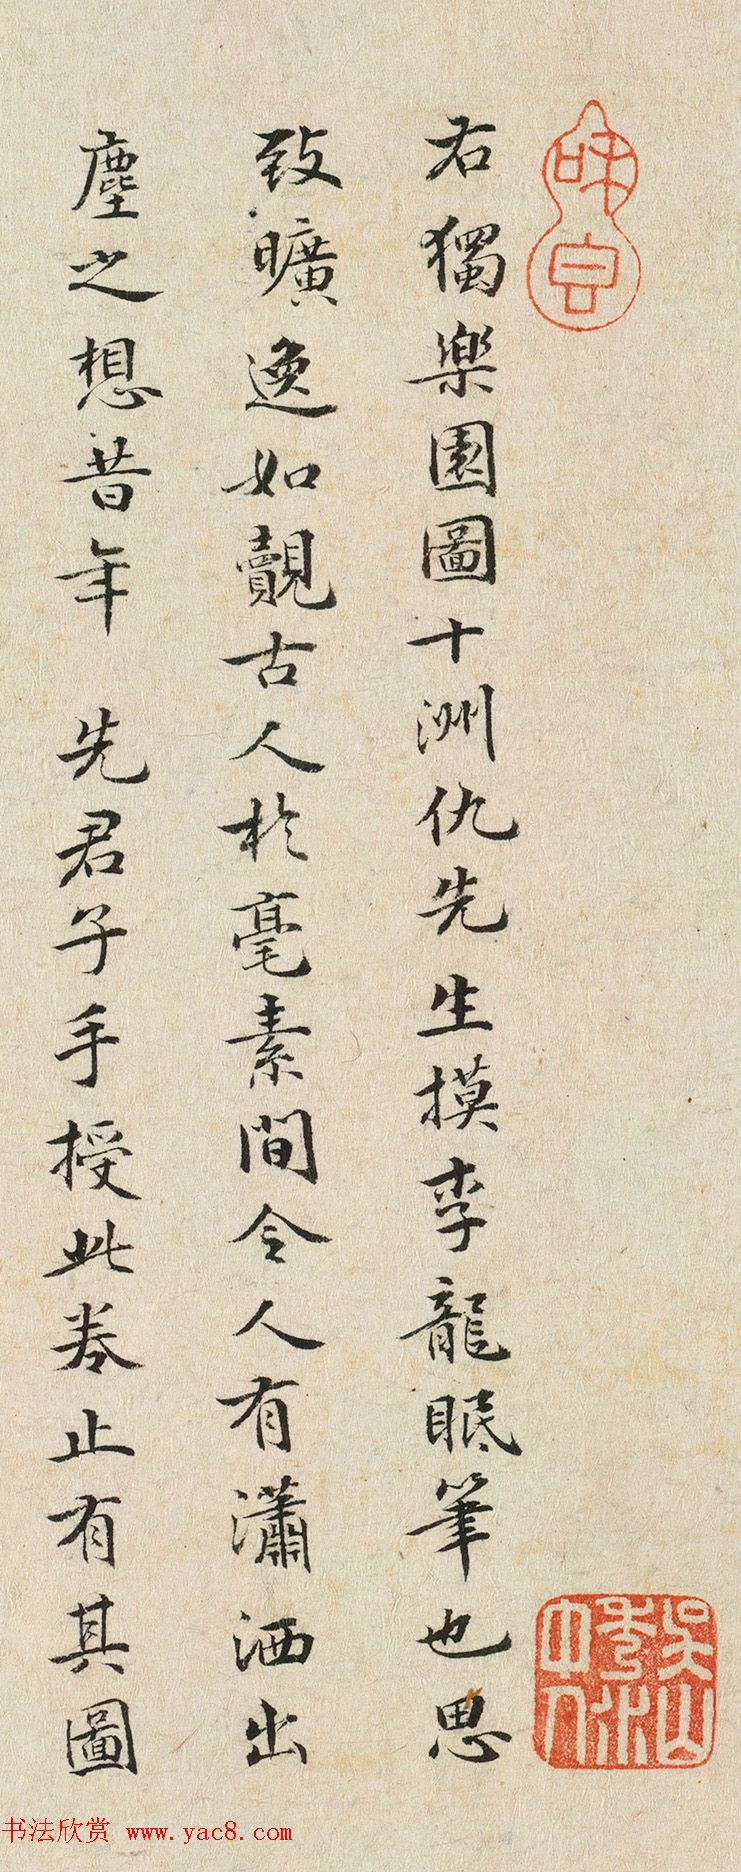 右獨樂園圖十洲仇先生摸李龍眠筆也思
致曠逸如覿古人於毫素間令人有瀟洒出
塵之想昔年 先君子手授此卷止有其圖
吳山秀水中人
书法欣赏 www.yac8.com